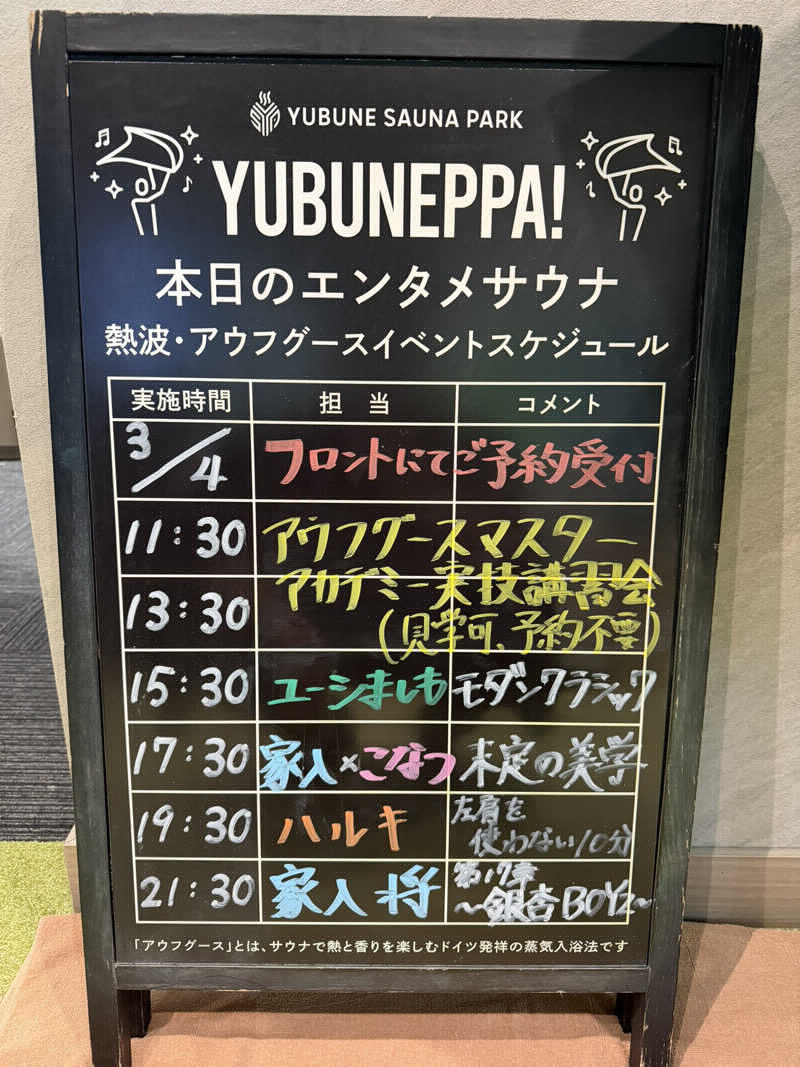 YUBUNE SAUNA PARK
YUBUNEPPA!
本日のエンタメサウナ
熱波・アウフグースイベントスケジュール
実施時間 担当 コメント
3/4 フロントにてご予約受付
11:30 アウフグースマスター
アカデミー実技講習会
13:30 (見学可、予約不要)
15:30 ユーシましも モダンクラシック
17:30 家入×こなつ 未定の美学
19:30 ハルキ 左肩を
使わない10分
21:30 家入 将 第17章
〜銀杏BOYZ〜
「アウフグース」とは、サウナで熱と香りを楽しむドイツ発祥の蒸気入浴法です